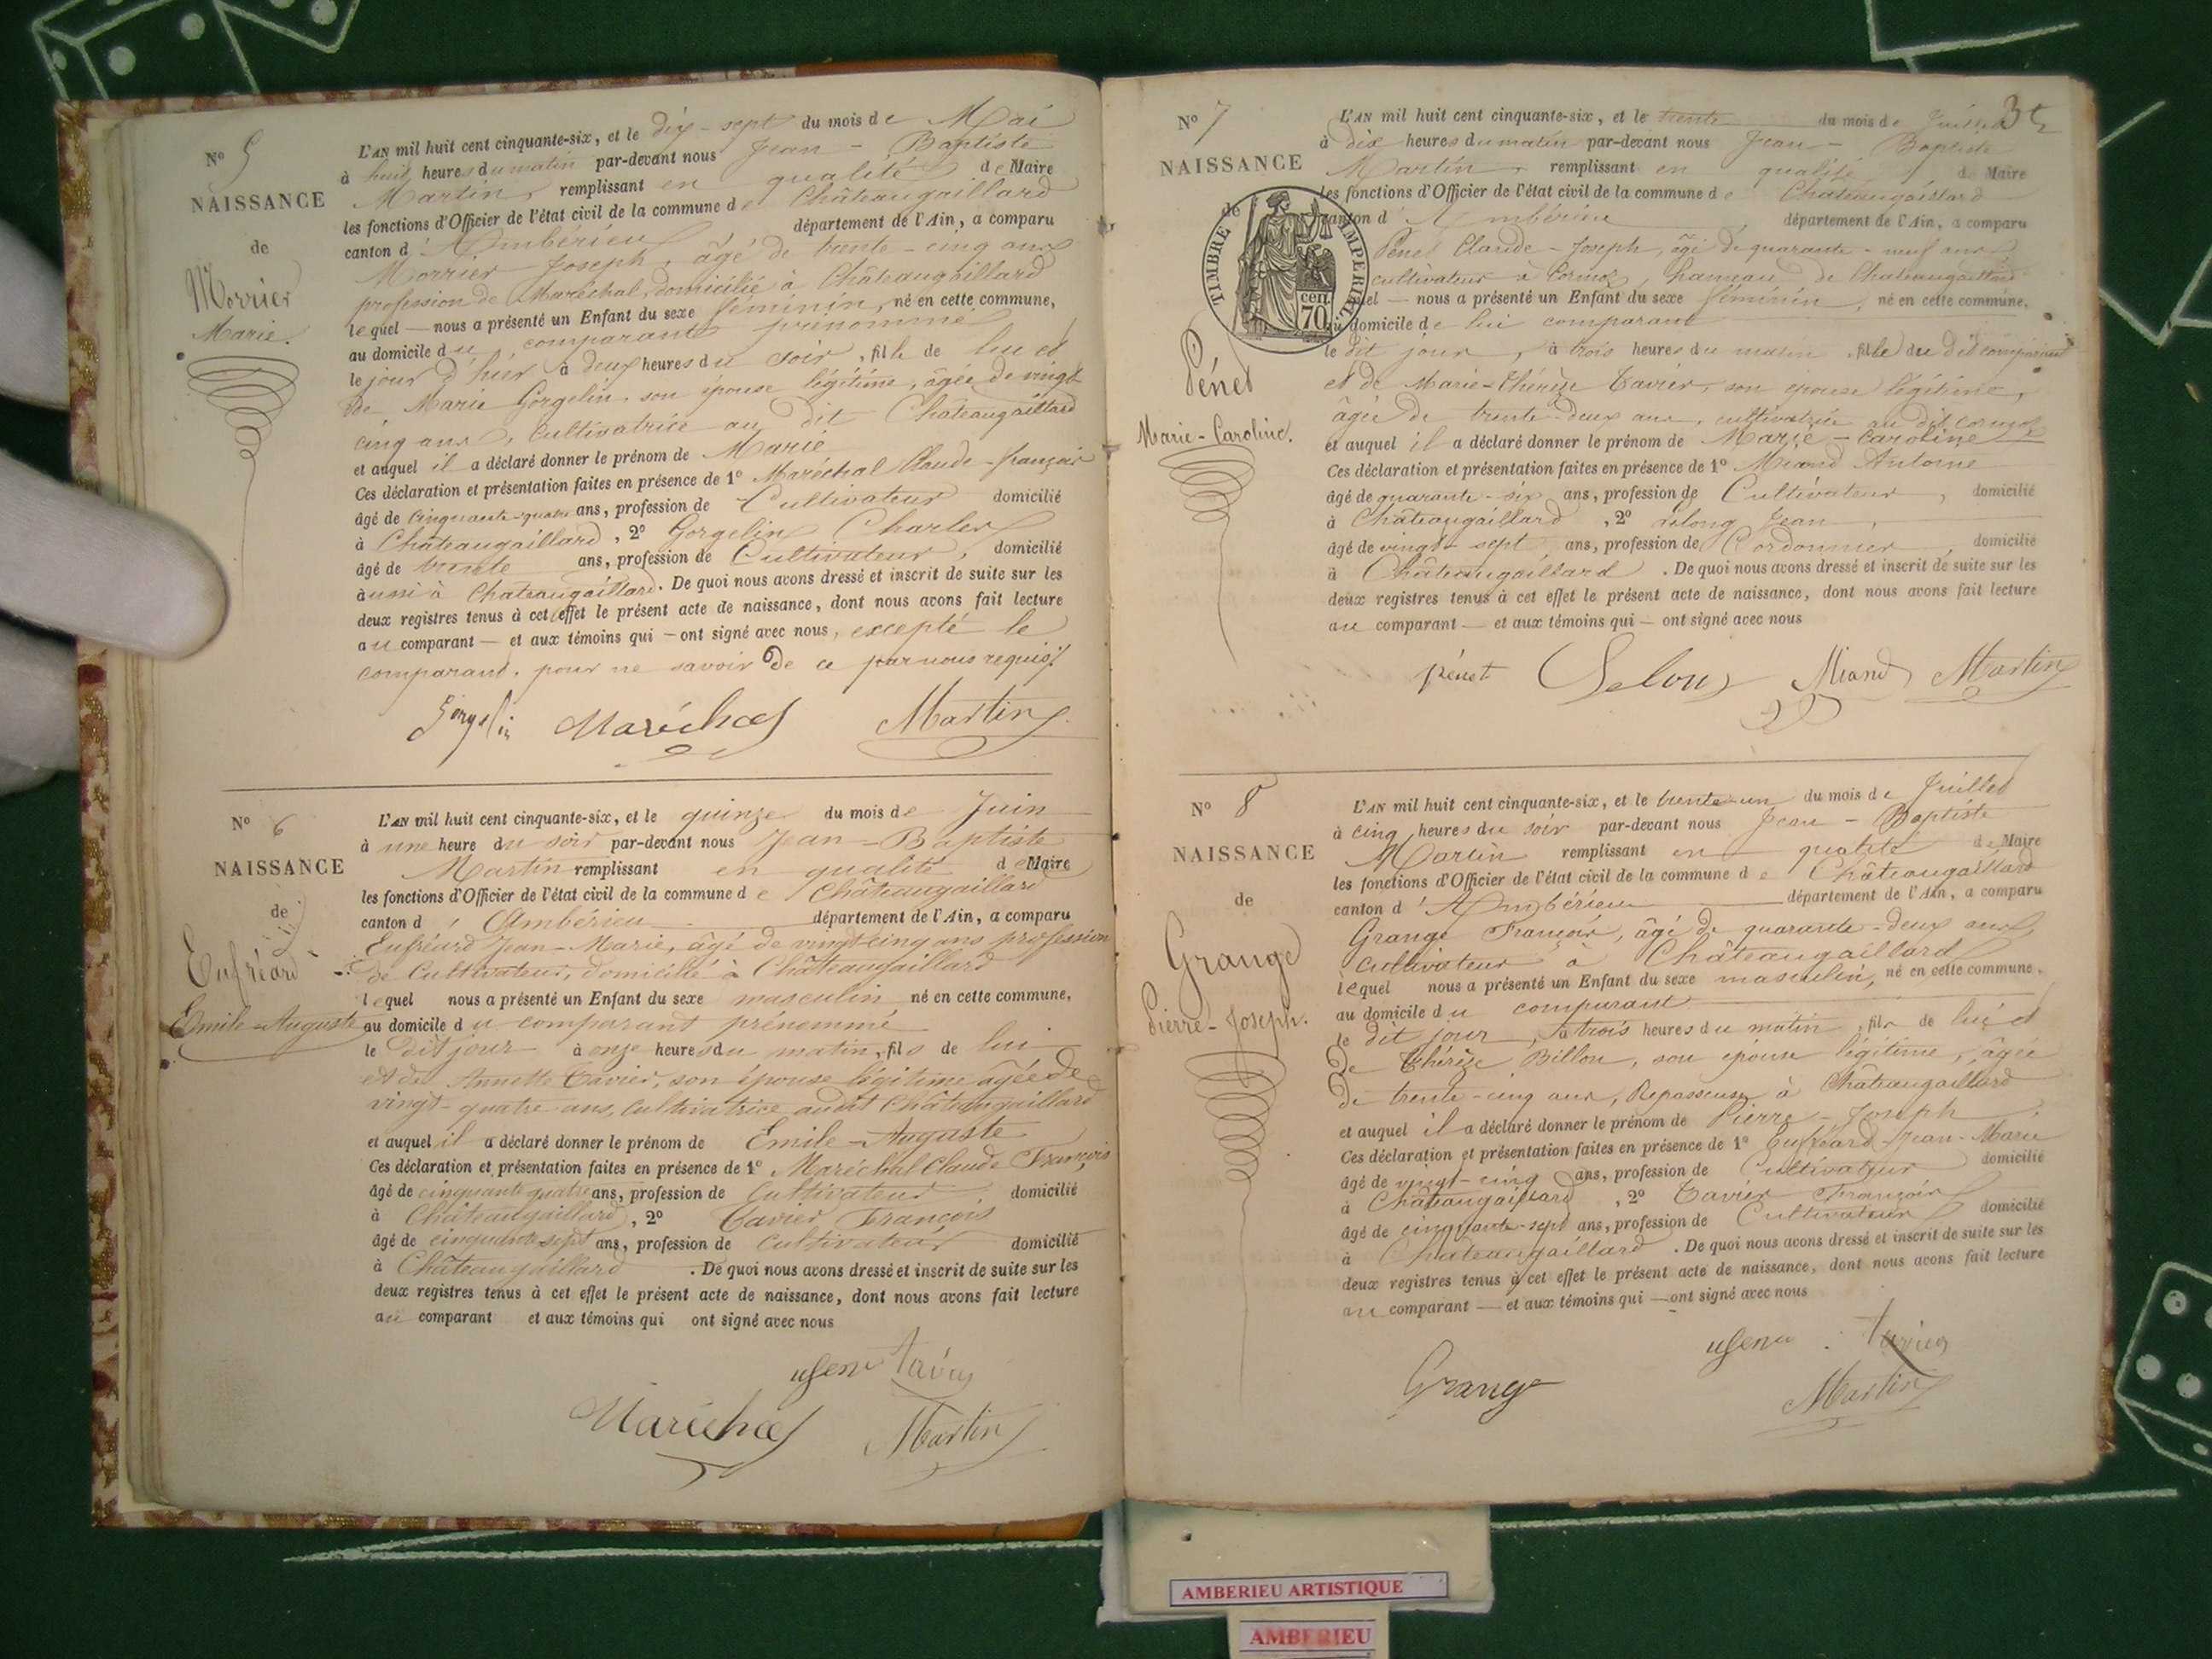 N° 5
NAISSANCE
de
Morrier
Marie.
L'AN mil huit cent cinquante-six, et le dix-sept du mois de Mai
à huit heures du matin par-devant nous Jean-Baptiste
Martin, remplissant en qualité de Maire
les fonctions d'Officier de l'état civil de la commune de Châteaugaillard
canton d'Ambérieu, département de l'Ain, a comparu
Morrier Joseph, âgé de trente-cinq ans
profession de Maréchal, domicilié à Châteaugaillard
lequel — nous a présenté un Enfant du sexe féminin, né en cette commune,
au domicile du comparant prénommé
le jour d'hier à deux heures du soir, fille de lui et
de Marie Gorgelin, son épouse légitime, âgée de vingt
cinq ans, Cultivatrice au dit Châteaugaillard
et auquel il a déclaré donner le prénom de Marie
Ces déclaration et présentation faites en présence de 1° Maréchal Claude-françois
âgé de cinquante-quatre ans, profession de Cultivateur domicilié
à Châteaugaillard, 2° Gorgelin Charles
âgé de trente ans, profession de Cultivateur, domicilié
aussi à Chateaugaillard. De quoi nous avons dressé et inscrit de suite sur les
deux registres tenus à cet effet le présent acte de naissance, dont nous avons fait lecture
au comparant — et aux témoins qui — ont signé avec nous, excepté le
comparant, pour ne savoir de ce par nous requis.
Gorgelin Maréchal Martin
N° 6
NAISSANCE
de
Eufréard
Emile-Auguste
L'AN mil huit cent cinquante-six, et le quinze du mois de Juin
à une heure du soir par-devant nous Jean-Baptiste
Martin remplissant en qualité de Maire
les fonctions d'Officier de l'état civil de la commune de Châteaugaillard
canton d'Ambérieu département de l'Ain, a comparu
Eufréard Jean-Marie, âgé de vingt-cinq ans profession
de Cultivateur, domicilié à Châteaugaillard
lequel nous a présenté un Enfant du sexe masculin né en cette commune,
au domicile du comparant prénommé
le dit jour à onze heures du matin, fils de lui
et de Annette Tavier, son épouse légitime âgée de
vingt-quatre ans, Cultivatrice audit Châteaugaillard
et auquel il a déclaré donner le prénom de Emile-Auguste
Ces déclaration et présentation faites en présence de 1° Maréchal Claude François
âgé de cinquante quatre ans, profession de Cultivateur, domicilié
à Châteaugaillard, 2° Tavier François
âgé de cinquante-sept ans, profession de Cultivateur domicilié
à Châteaugaillard. De quoi nous avons dressé et inscrit de suite sur les
deux registres tenus à cet effet le présent acte de naissance, dont nous avons fait lecture
au comparant et aux témoins qui ont signé avec nous
Maréchal Martin
35
N° 7
NAISSANCE
de
TIMBRE IMPERIAL
70 cen.
Pénet
Marie-Caroline.
L'AN mil huit cent cinquante-six, et le trente du mois de Juillet
à dix heures du matin par-devant nous Jean-Baptiste
Martin remplissant en qualité de Maire
les fonctions d'Officier de l'état civil de la commune de Châteaugaillard
canton d'Ambérieu département de l'Ain, a comparu
Pénet Claude-Joseph, âgé de quarante-neuf ans
cultivateur à Cormoz, hameau de Chateaugaillard
lequel — nous a présenté un Enfant du sexe féminin, né en cette commune,
au domicile de lui comparant
le dit jour, à trois heures du matin, fille du dit comparant
et de Marie-Thérèse Tavier, son épouse légitime,
âgée de trente-deux ans, cultivatrice au dit Cormoz
et auquel il a déclaré donner le prénom de Marie-Caroline
Ces déclaration et présentation faites en présence de 1° Miand Antoine
âgé de quarante-six ans, profession de Cultivateur, domicilié
à Châteaugaillard, 2° Lelong Jean,
âgé de vingt-sept ans, profession de Cordonnier, domicilié
à Châteaugaillard. De quoi nous avons dressé et inscrit de suite sur les
deux registres tenus à cet effet le présent acte de naissance, dont nous avons fait lecture
au comparant — et aux témoins qui — ont signé avec nous
pénet Miand Martin
N° 8
NAISSANCE
de
Grange
Pierre-Joseph.
L'AN mil huit cent cinquante-six, et le trente-un du mois de Juillet
à cinq heures du soir par-devant nous Jean-Baptiste
Martin remplissant en qualité de Maire
les fonctions d'Officier de l'état civil de la commune de Châteaugaillard
canton d'Ambérieu département de l'Ain, a comparu
Grange François, âgé de quarante-deux ans,
cultivateur à Châteaugaillard
lequel nous a présenté un Enfant du sexe masculin, né en cette commune,
au domicile du comparant
le dit jour, à trois heures du matin, fils de lui et
de Thérèze Billon, son épouse légitime, âgée
de trente-cinq ans, Repasseuse à Châteaugaillard
et auquel il a déclaré donner le prénom de Pierre-Joseph.
Ces déclaration et présentation faites en présence de 1° Eufréard Jean-Marie
âgé de vingt-cinq ans, profession de Cultivateur domicilié
à Châteaugaillard, 2° Tavier François
âgé de cinquante-sept ans, profession de Cultivateur domicilié
à Châteaugaillard. De quoi nous avons dressé et inscrit de suite sur les
deux registres tenus à cet effet le présent acte de naissance, dont nous avons fait lecture
au comparant — et aux témoins qui — ont signé avec nous
Grange tavier
Martin
AMBERIEU ARTISTIQUE
AMBERIEU